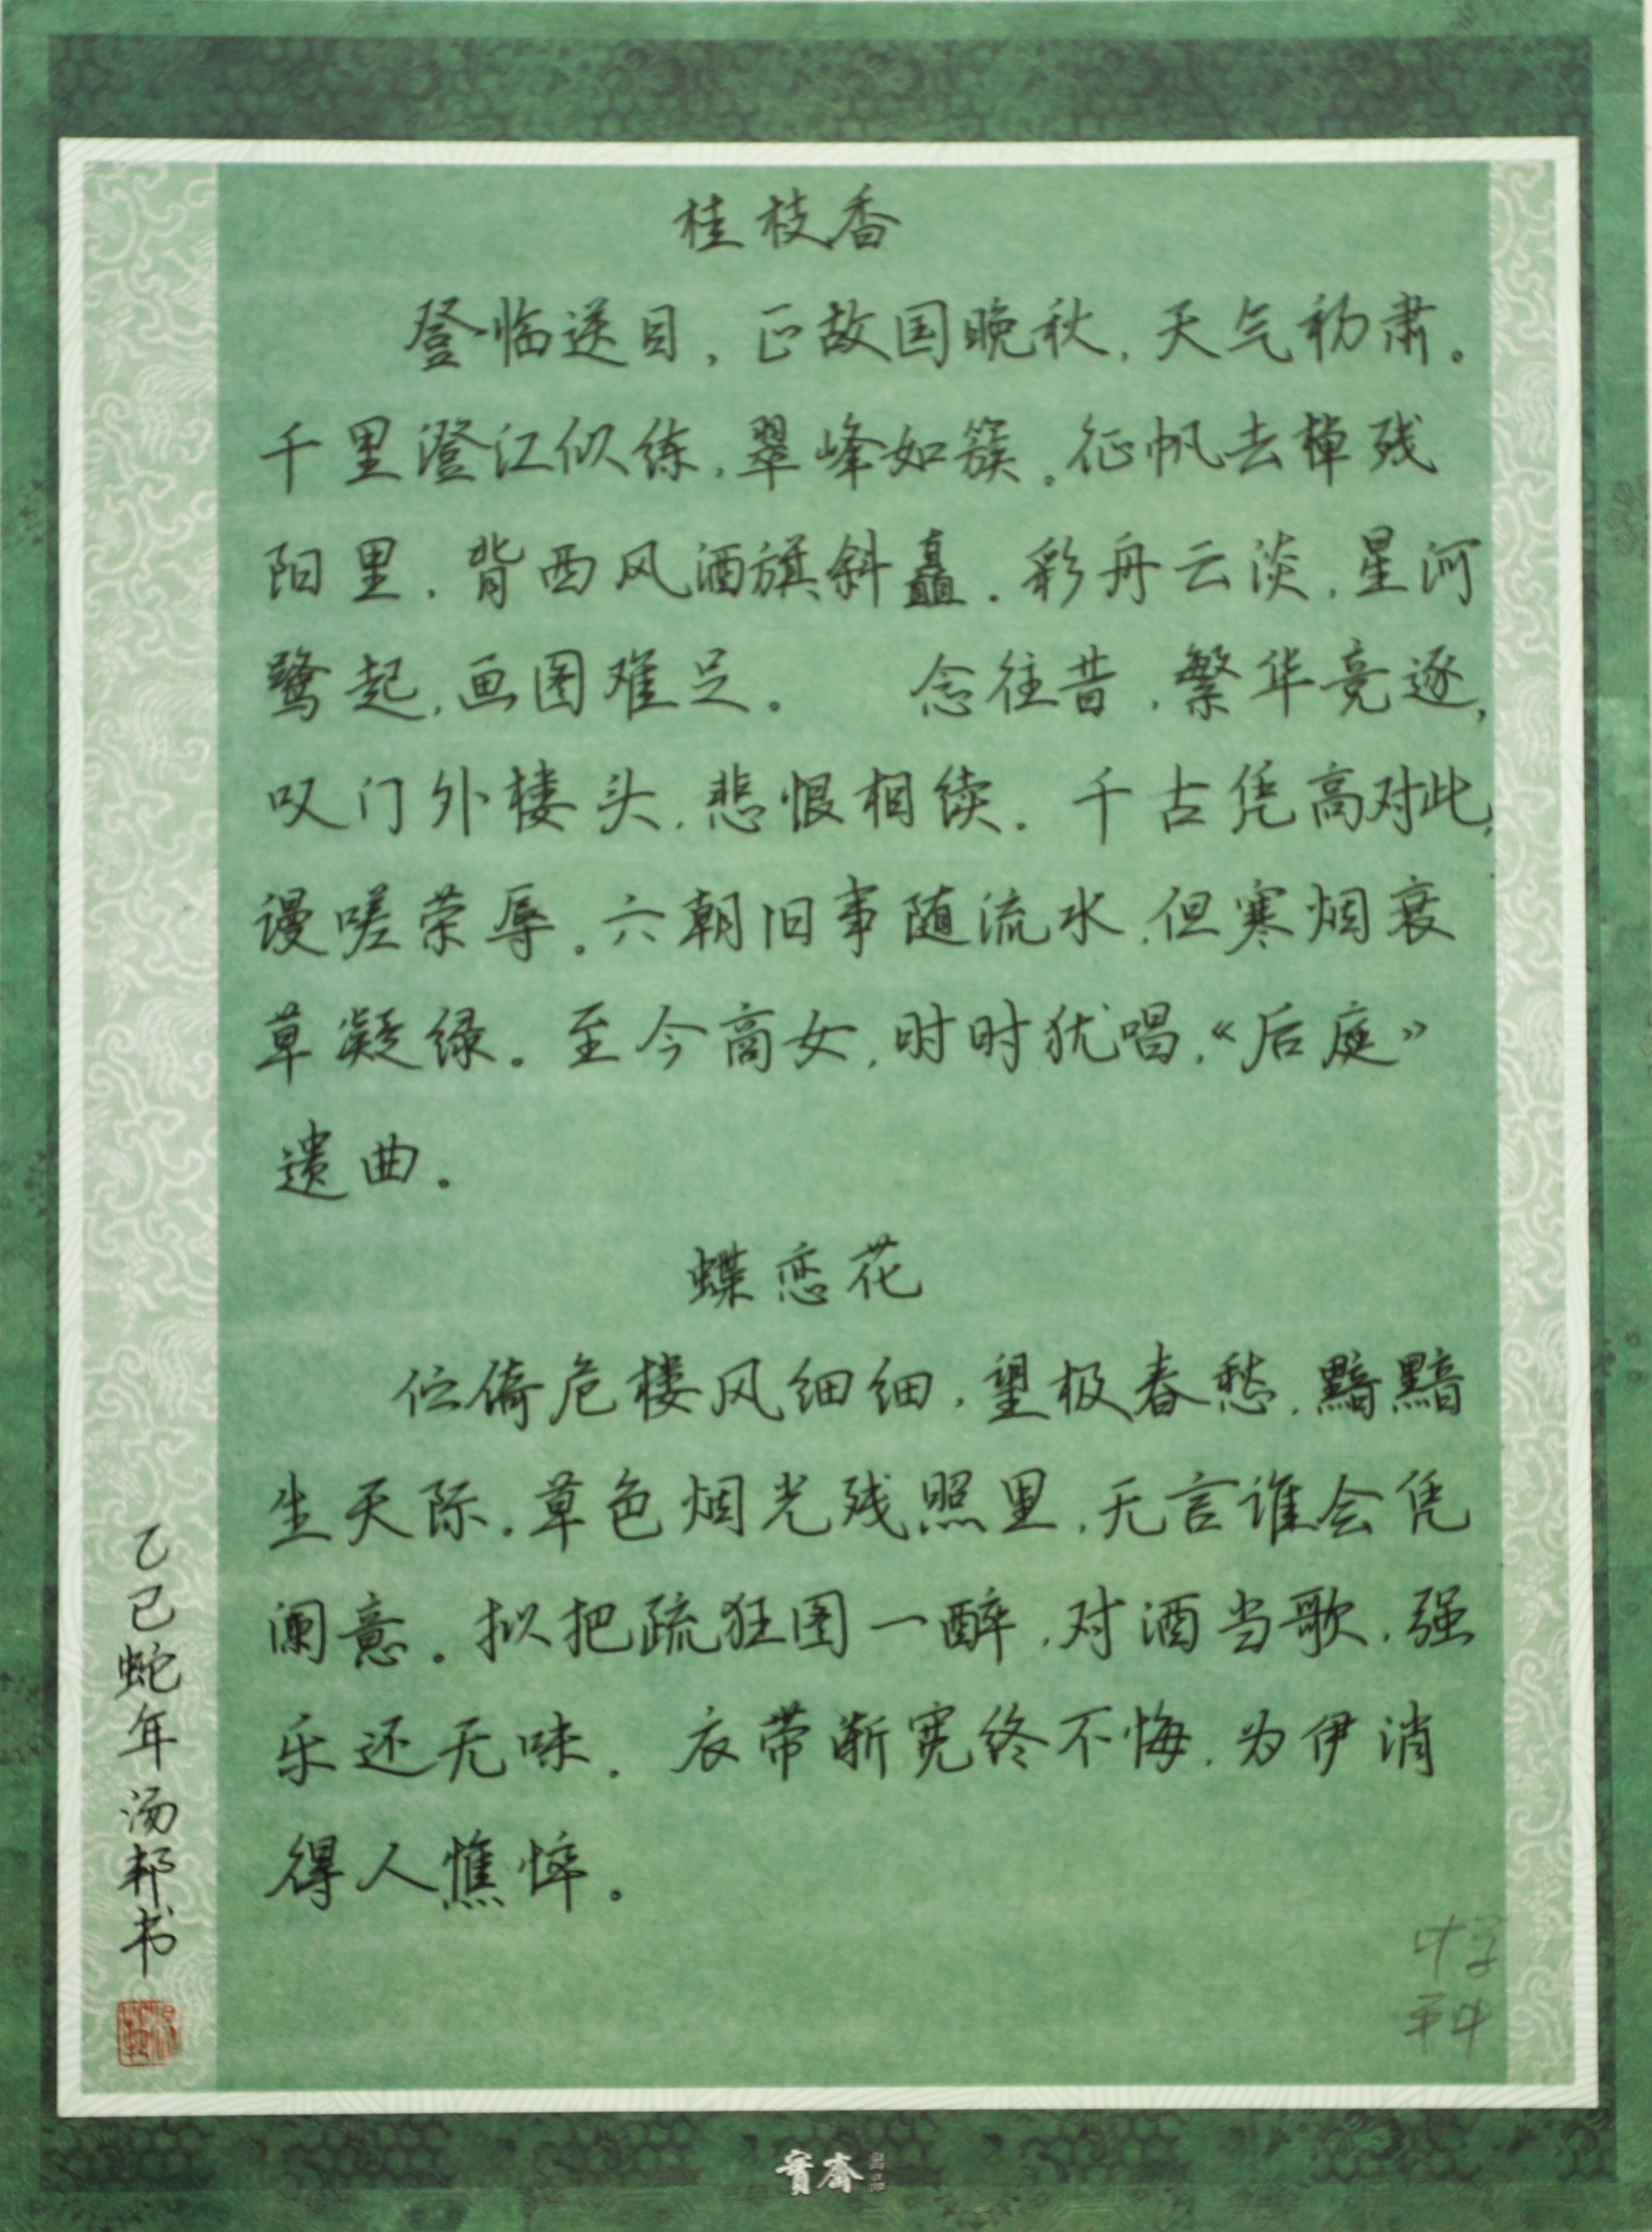 桂枝香
登临送目，正故国晚秋，天气初肃。
千里澄江似练，翠峰如簇。征帆去棹残
阳里，背西风酒旗斜矗。彩舟云淡，星河
鹭起，画图难足。　念往昔，繁华竞逐，
叹门外楼头，悲恨相续。千古凭高对此，
谩嗟荣辱。六朝旧事随流水，但寒烟衰
草凝绿。至今商女，时时犹唱，《后庭》
遗曲。
蝶恋花
伫倚危楼风细细，望极春愁，黯黯
生天际。草色烟光残照里，无言谁会凭
阑意。拟把疏狂图一醉，对酒当歌，强
乐还无味。衣带渐宽终不悔，为伊消
得人憔悴。
乙巳蛇年汤邦书